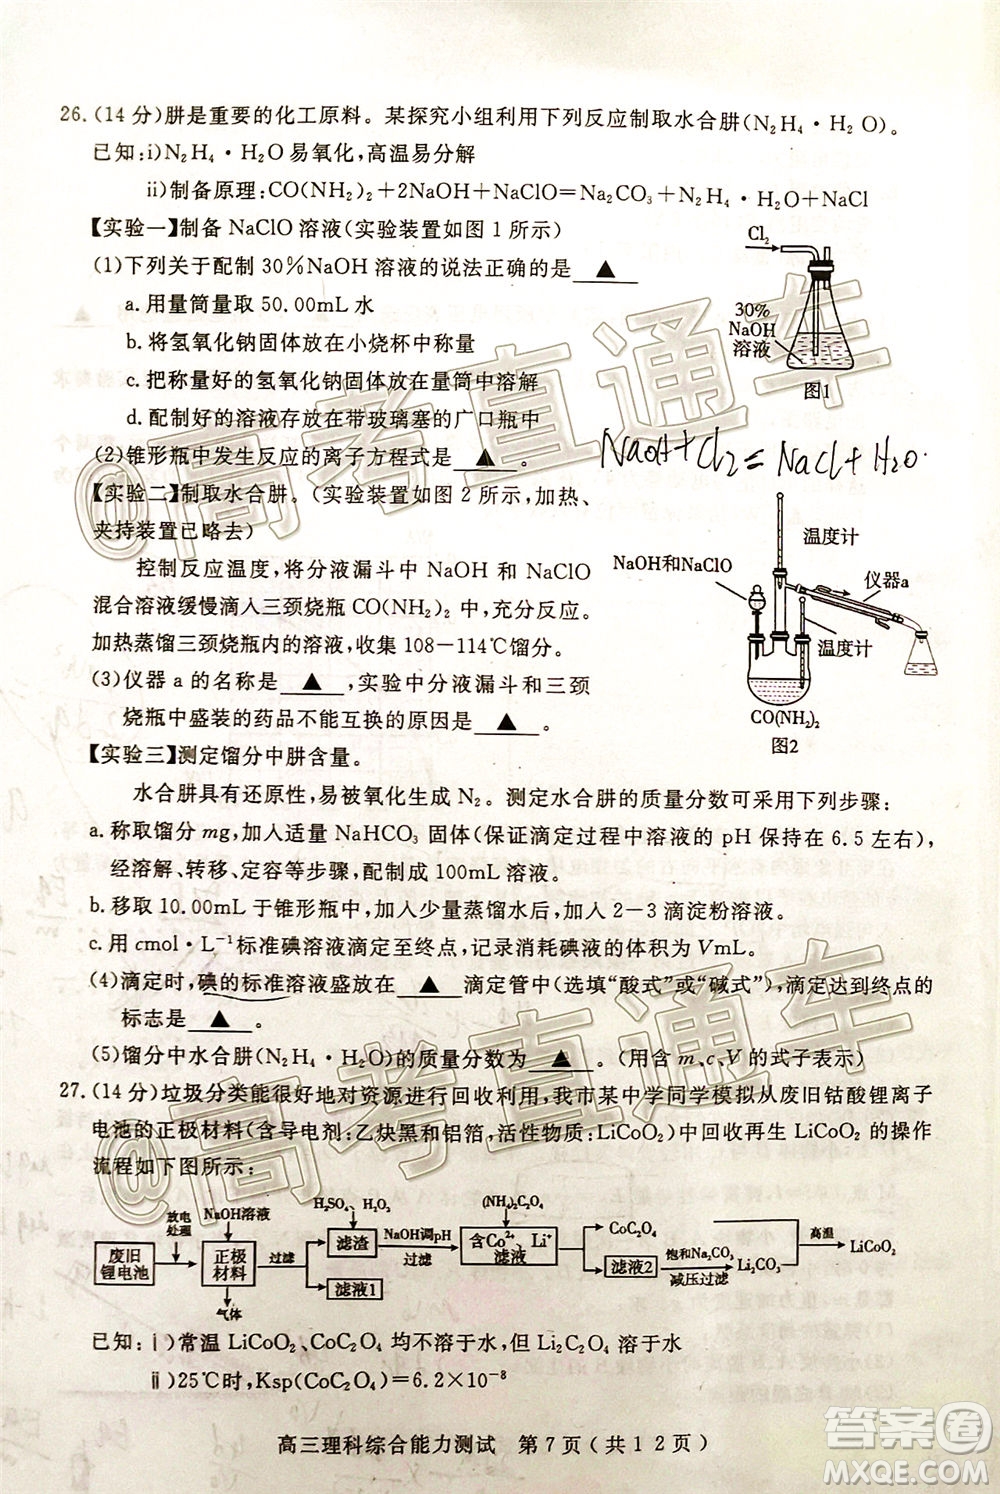 26.(14分)肼是重要的化工原料。某探究小组利用下列反应制取水合肼(N₂H₄·H₂O)。
已知:ⅰ)N₂H₄·H₂O易氧化,高温易分解
ⅱ)制备原理:CO(NH₂)₂+2NaOH+NaClO=Na₂CO₃+N₂H₄·H₂O+NaCl
【实验一】制备NaClO溶液(实验装置如图1所示)
(1)下列关于配制30%NaOH溶液的说法正确的是 ▲
a.用量筒量取50.00mL水
b.将氢氧化钠固体放在小烧杯中称量
c.把称量好的氢氧化钠固体放在量筒中溶解
d.配制好的溶液存放在带玻璃塞的广口瓶中
Cl₂
30%
NaOH
溶液
图1
(2)锥形瓶中发生反应的离子方程式是 ▲ 。
NaOH+Cl₂=NaCl+H₂O.
【实验二】制取水合肼。(实验装置如图2所示,加热、
夹持装置已略去)
控制反应温度,将分液漏斗中NaOH和NaClO
混合溶液缓慢滴入三颈烧瓶CO(NH₂)₂中,充分反应。
加热蒸馏三颈烧瓶内的溶液,收集108-114℃馏分。
(3)仪器a的名称是 ▲ ,实验中分液漏斗和三颈
烧瓶中盛装的药品不能互换的原因是 ▲
温度计
NaOH和NaClO
仪器a
温度计
CO(NH₂)₂
图2
【实验三】测定馏分中肼含量。
水合肼具有还原性,易被氧化生成N₂。测定水合肼的质量分数可采用下列步骤:
a.称取馏分mg,加入适量NaHCO₃固体(保证滴定过程中溶液的pH保持在6.5左右),
经溶解、转移、定容等步骤,配制成100mL溶液。
b.移取10.00mL于锥形瓶中,加入少量蒸馏水后,加入2-3滴淀粉溶液。
c.用cmol·L⁻¹标准碘溶液滴定至终点,记录消耗碘液的体积为VmL。
(4)滴定时,碘的标准溶液盛放在 ▲ 滴定管中(选填“酸式”或“碱式”);达到终点的
标志是 ▲ 。
(5)馏分中水合肼(N₂H₄·H₂O)的质量分数为 ▲ 。(用含m、c、V的式子表示)
27.(14分)垃圾分类能很好地对资源进行回收利用,我市某中学同学模拟从废旧钴酸锂离子
电池的正极材料(含导电剂:乙炔黑和铝箔,活性物质:LiCoO₂)中回收再生LiCoO₂的操作
流程如下图所示:
放电
处理
NaOH溶液
H₂SO₄、H₂O₂
(NH₄)₂C₂O₄
废旧
锂电池
正极
材料
气体
过滤
滤渣
滤液1
NaOH调pH
过滤
含Co²⁺、Li⁺
滤液
CoC₂O₄
滤液2
饱和Na₂CO₃
减压过滤
Li₂CO₃
高温
LiCoO₂
已知:ⅰ)常温LiCoO₂、CoC₂O₄均不溶于水,但Li₂C₂O₄溶于水
ⅱ)25℃时,Ksp(CoC₂O₄)=6.2×10⁻⁸
高三理科综合能力测试 第7页(共12页)
@高考直通车
@高考直通车
答案圈
MXQE.COM